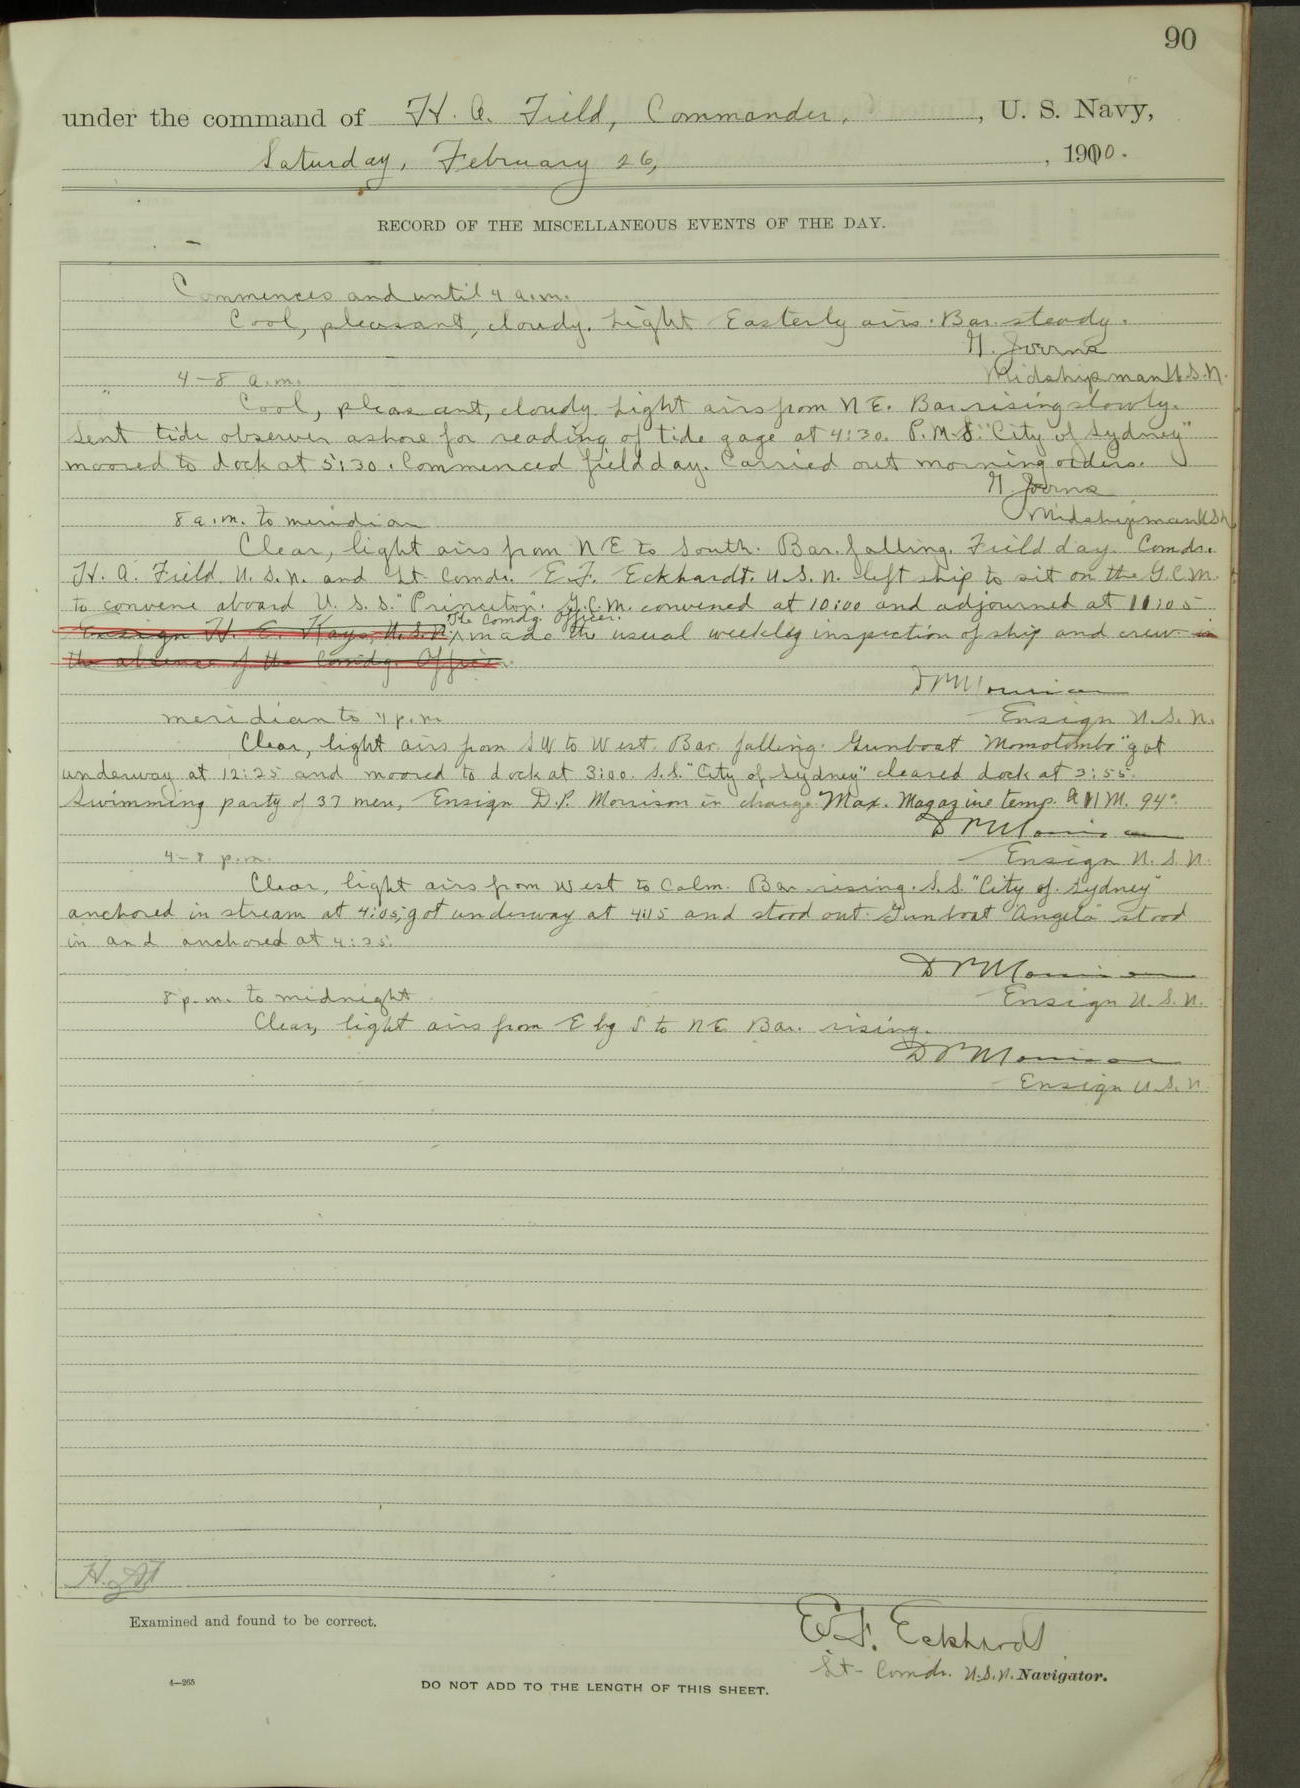 90
under the command of H. A. Field, Commander, , U. S. Navy,
Saturday, February 26, , 1910.
RECORD OF THE MISCELLANEOUS EVENTS OF THE DAY.
Commences and until 4 a.m.
Cool, pleasant, cloudy. Light Easterly airs. Bar. steady.
Midshipman U.S.N.
4-8 a.m.
Cool, pleasant, cloudy. Light airs from NE. Bar. rising slowly.
Sent tide observer ashore for reading of tide gage at 4:30. P.M.S. "City of Sydney"
moored to dock at 5:30. Commenced field day. Carried out morning orders.
Midshipman U.S.N.
8 a.m. to meridian
Clear, light airs from NE to South. Bar. falling. Field day. Comdr.
H. A. Field U.S.N. and Lt. Comdr. E.F. Eckhardt. U.S.N. left ship to sit on the G.C.M.
to convene aboard U.S.S. "Princeton". G.C.M. convened at 10:00 and adjourned at 11:05
The Comdg. Officer.
Ensign H. E. Kays, U.S.N. made the usual weekly inspection of ship and crew in
the absence of the Comdg. Officer.
D P Morrison
Ensign U.S.N.
meridian to 4 p.m.
Clear, light airs from SW to West. Bar. falling. Gunboat "Momotombo" got
underway at 12:25 and moored to dock at 3:00. S.S. "City of Sydney" cleared dock at 3:55.
Swimming party of 37 men, Ensign D.P. Morrison in charge. Max. Magazine temp. 94°.
D P Morrison
Ensign U.S.N.
4-8 p.m.
Clear, light airs from West to Calm. Bar. rising. S.S. "City of Sydney"
anchored in stream at 4:05; got underway at 4:15 and stood out. Gunboat "Angela" stood
in and anchored at 4:35.
D P Morrison
Ensign U.S.N.
8 p.m. to midnight
Clear, light airs from E by S to NE. Bar. rising.
D P Morrison
Ensign U.S.N.
Examined and found to be correct.
E. F. Eckhardt
Lt-Comdr. U.S.N. Navigator.
4—265
DO NOT ADD TO THE LENGTH OF THIS SHEET.